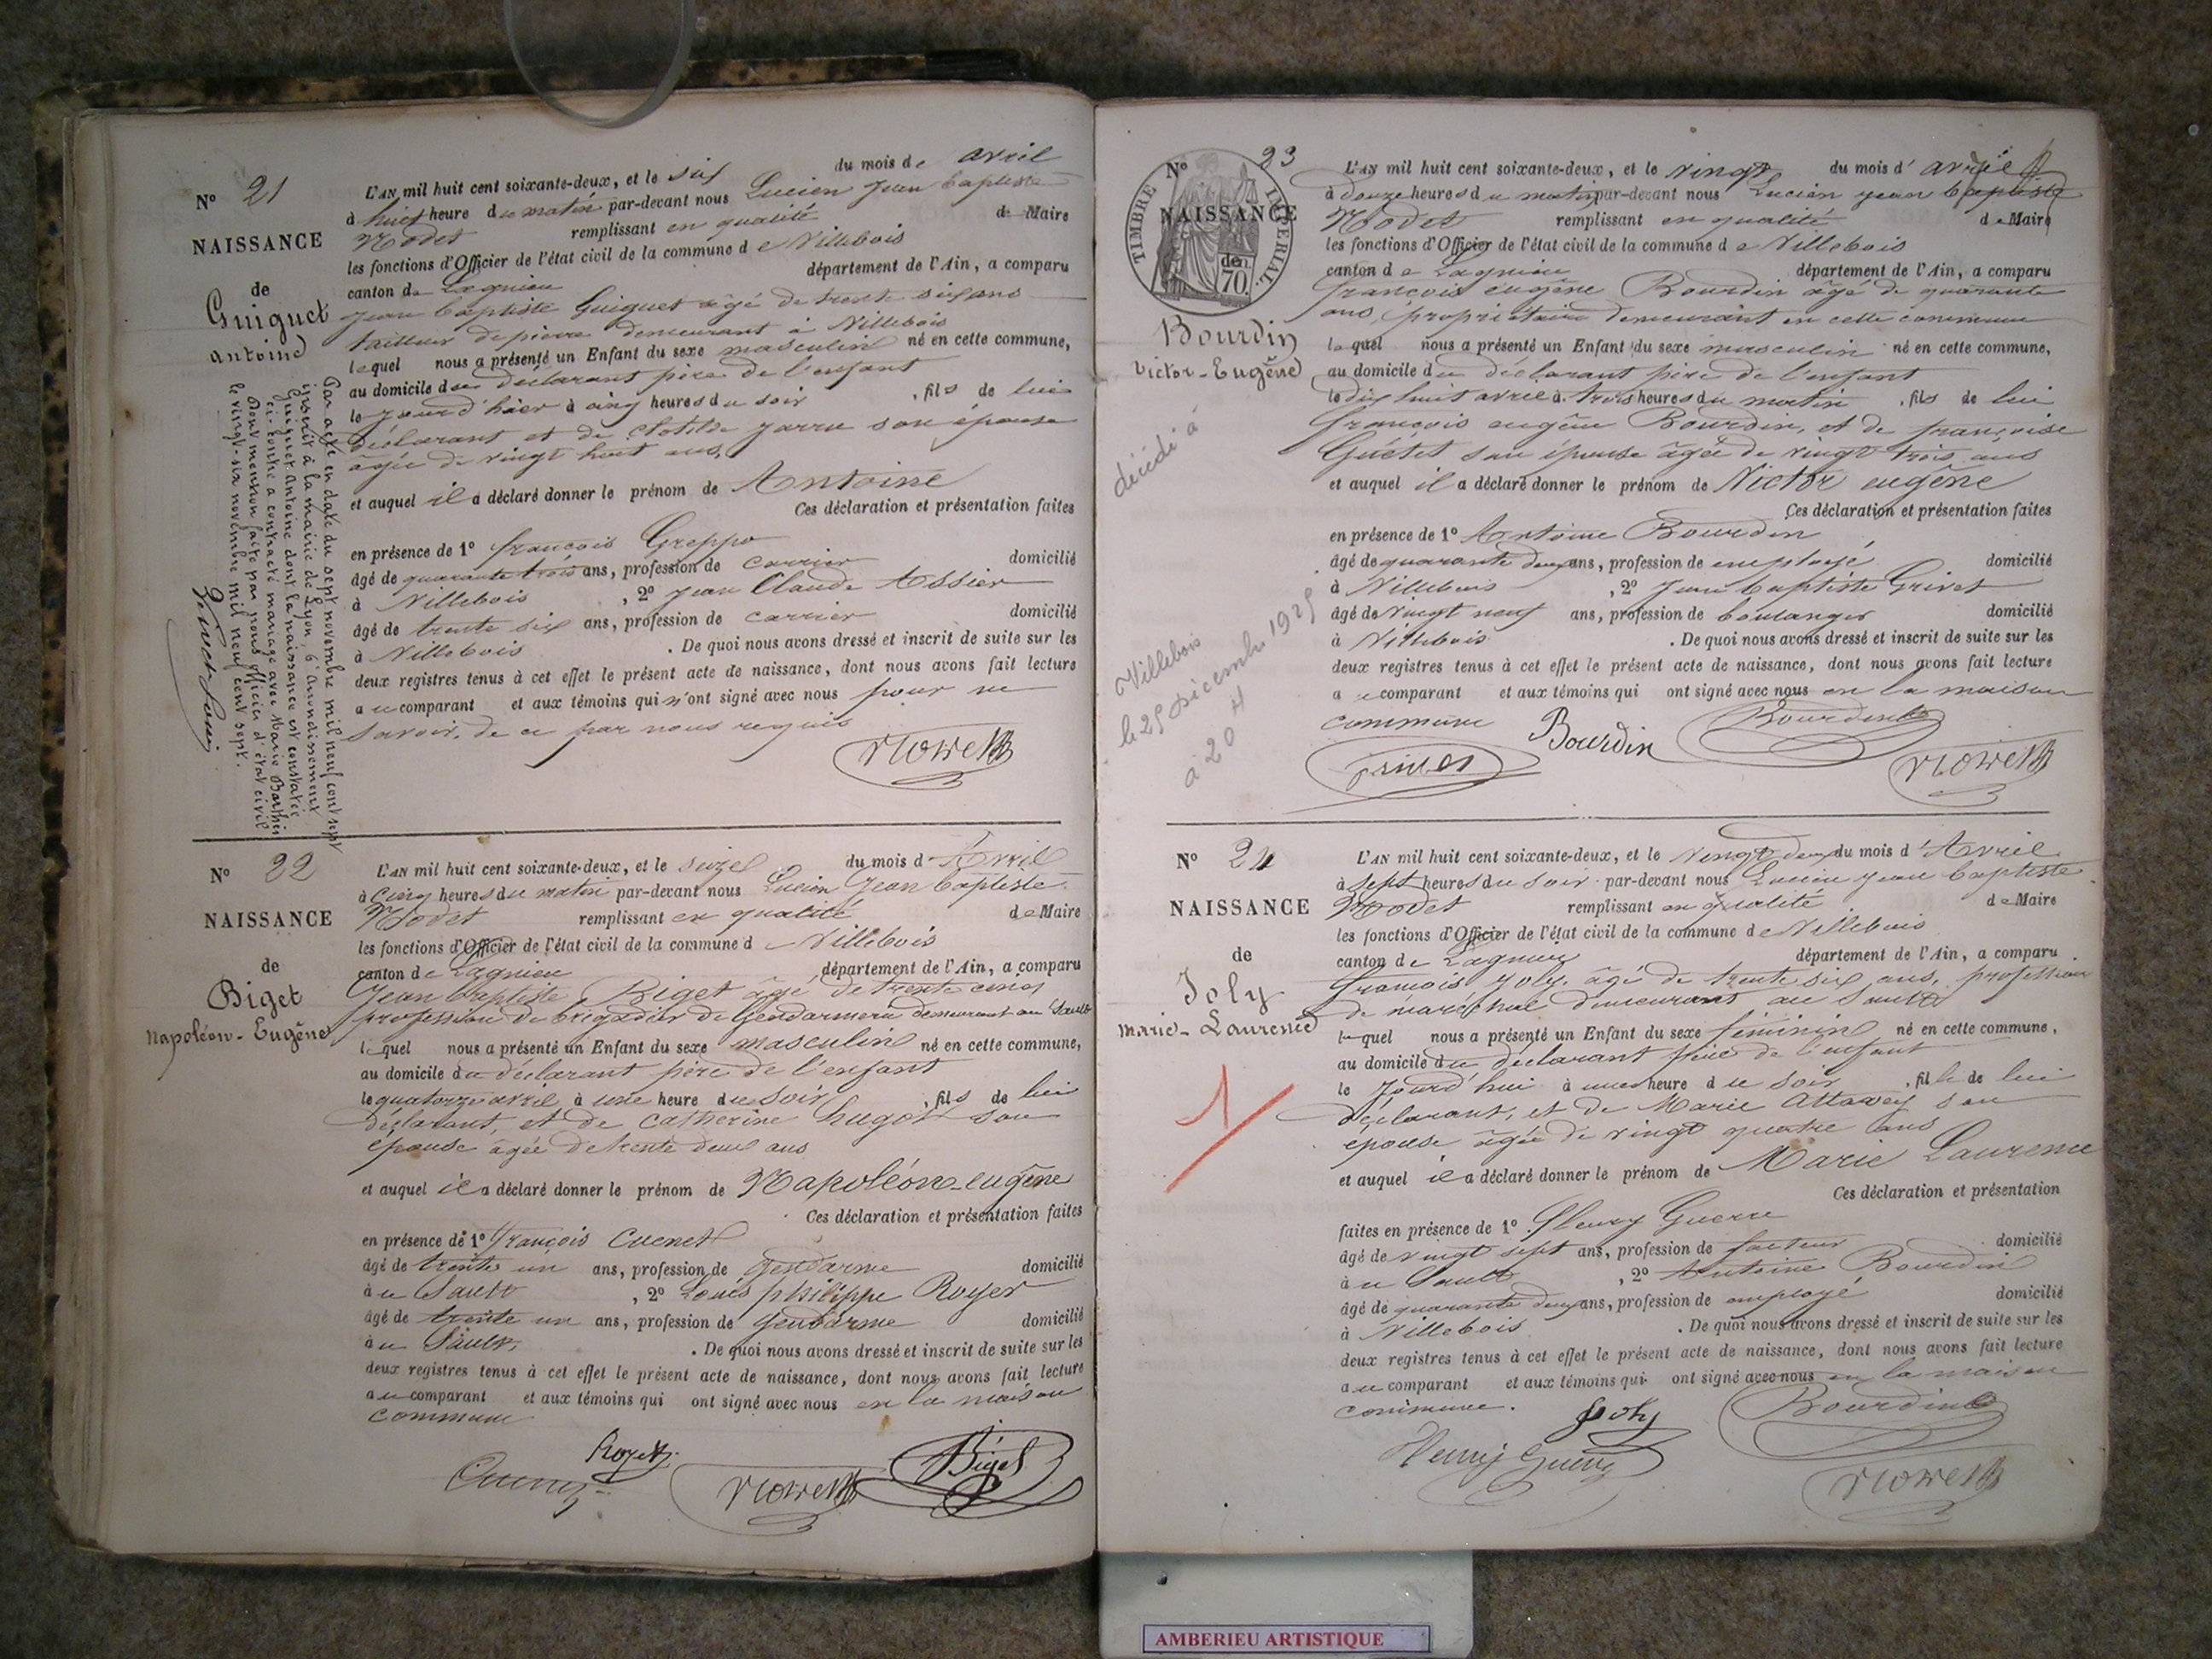 N° 21
NAISSANCE
de
Guiguet
Antoine
L'AN mil huit cent soixante-deux, et le six du mois de avril
à huit heure du matin par-devant nous Lucien Jean Baptiste
Nodet remplissant en qualité de Maire
les fonctions d'Officier de l'état civil de la commune de Villebois
canton de Lagnieu département de l'Ain, a comparu
Jean Baptiste Guiguet âgé de trente six ans
tailleur de pierre demeurant à Villebois
lequel nous a présenté un Enfant du sexe masculin né en cette commune,
au domicile du déclarant père de l'enfant
le jour d'hier à cinq heures du soir, fils de lui
déclarant et de Clotilde Jarru son épouse
âgée de vingt huit ans,
et auquel il a déclaré donner le prénom de Antoine
Ces déclaration et présentation faites
en présence de 1° françois Greppo
âgé de quarante trois ans, profession de carrier domicilié
à Villebois, 2° Jean Claude Assier
âgé de trente six ans, profession de carrier domicilié
à Villebois. De quoi nous avons dressé et inscrit de suite sur les
deux registres tenus à cet effet le présent acte de naissance, dont nous avons fait lecture
au comparant et aux témoins qui n'ont signé avec nous pour ne
savoir, de ce par nous requis
Par acte en date du sept novembre mil neuf cent sept
inscrit à la mairie de Lyon, 6e arrondissement
Guiguet Antoine dont la naissance est constatée
ci-contre a contracté mariage avec Marie
Dont mention faite par nous officier d'état civil
le vingt-six novembre mil neuf cent sept.
N° 22
NAISSANCE
de
Biget
Napoléon-Eugène
L'AN mil huit cent soixante-deux, et le seize du mois d'Avril
à cinq heures du matin par-devant nous Lucien Jean Baptiste
Nodet remplissant en qualité de Maire
les fonctions d'Officier de l'état civil de la commune de Villebois
canton de Lagnieu département de l'Ain, a comparu
Jean Baptiste Biget âgé de trente cinq
profession de brigadier de Gendarmerie demeurant au Sault
lequel nous a présenté un Enfant du sexe masculin né en cette commune,
au domicile du déclarant père de l'enfant
le quatorze avril à une heure du soir, fils de lui
déclarant, et de Catherine hugot son
épouse âgée de trente deux ans
et auquel il a déclaré donner le prénom de Napoléon-eugène
Ces déclaration et présentation faites
en présence de 1° François Cuenet
âgé de trente un ans, profession de gendarme domicilié
au Sault, 2° Louis philippe Royer
âgé de trente un ans, profession de gendarme domicilié
au Sault. De quoi nous avons dressé et inscrit de suite sur les
deux registres tenus à cet effet le présent acte de naissance, dont nous avons fait lecture
au comparant et aux témoins qui ont signé avec nous en la maison
commune
Biget
N° 23
TIMBRE IMPERIAL
NAISSANCE
den.
70.
Bourdin
Victor-Eugène
décédé à
Villebois
le 25 décembre 1925
à 20 H
L'AN mil huit cent soixante-deux, et le vingt du mois d'avril
à douze heures du matin par-devant nous Lucien Jean Baptiste
Nodet remplissant en qualité de Maire
les fonctions d'Officier de l'état civil de la commune de Villebois
canton de Lagnieu département de l'Ain, a comparu
françois eugène Bourdin âgé de quarante
ans, propriétaire demeurant en cette commune
lequel nous a présenté un Enfant du sexe masculin né en cette commune,
au domicile du déclarant père de l'enfant
le dix huit avril à trois heures du matin, fils de lui
françois eugène Bourdin, et de françoise
Guétet son épouse âgée de vingt trois ans
et auquel il a déclaré donner le prénom de Victor eugène
Ces déclaration et présentation faites
en présence de 1° Antoine Bourdin
âgé de quarante deux ans, profession de employé domicilié
à Villebois, 2° Jean baptiste Grivet
âgé de vingt neuf ans, profession de boulanger domicilié
à Villebois. De quoi nous avons dressé et inscrit de suite sur les
deux registres tenus à cet effet le présent acte de naissance, dont nous avons fait lecture
au comparant et aux témoins qui ont signé avec nous en la maison
commune
Bourdin Bourdin
N° 24
NAISSANCE
de
Joly
Marie-Laurence
1
L'AN mil huit cent soixante-deux, et le vingt deux du mois d'Avril
à sept heures du soir par-devant nous Lucien Jean baptiste
Nodet remplissant en qualité de Maire
les fonctions d'Officier de l'état civil de la commune de Villebois
canton de Lagnieu département de l'Ain, a comparu
françois Joly, âgé de trente six ans, profession
de maréchal demeurant au Sault
lequel nous a présenté un Enfant du sexe féminin né en cette commune,
au domicile du déclarant père de l'enfant
le jourd'hui à une heure du soir, fille de lui
déclarant, et de Marie Attavey son
épouse âgée de vingt quatre ans
et auquel il a déclaré donner le prénom de Marie Laurence
Ces déclaration et présentation
faites en présence de 1° fleury Guerre
âgé de vingt sept ans, profession de facteur domicilié
au Sault, 2° Antoine Bourdin
âgé de quarante deux ans, profession de employé domicilié
à Villebois. De quoi nous avons dressé et inscrit de suite sur les
deux registres tenus à cet effet le présent acte de naissance, dont nous avons fait lecture
au comparant et aux témoins qui ont signé avec nous en la maison
commune.
Joly Bourdin
AMBERIEU ARTISTIQUE